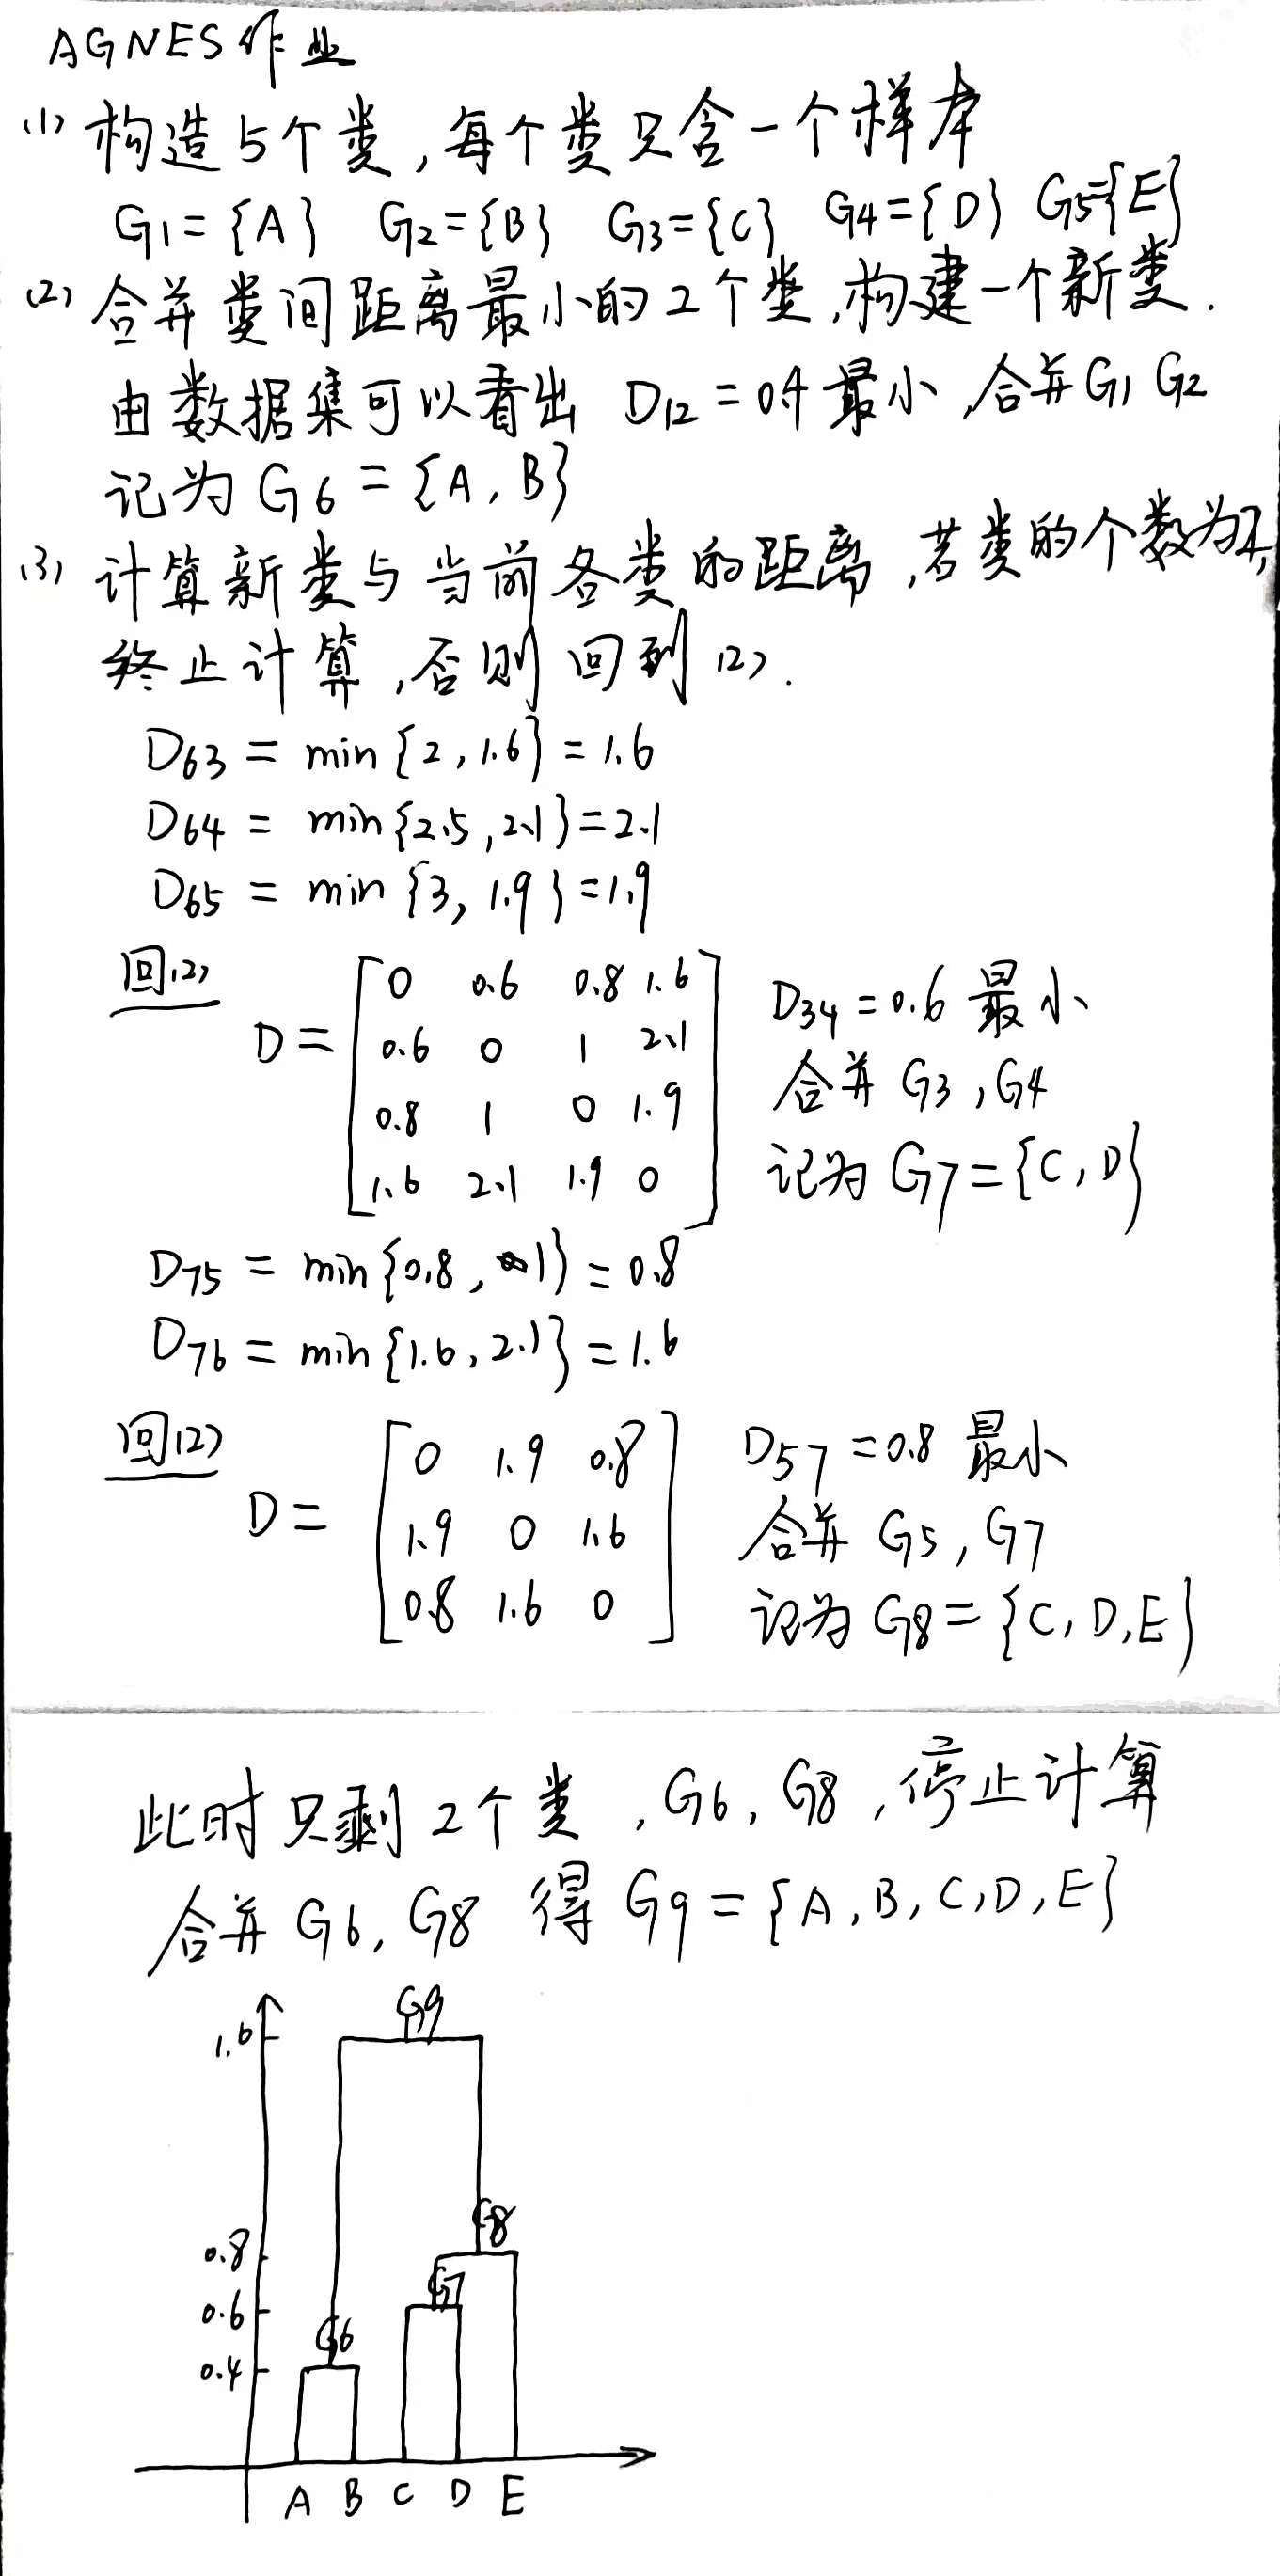 AGNES作业
(1) 构造5个类,每个类只含一个样本
G1={A} G2={B} G3={C} G4={D} G5={E}
(2) 合并类间距离最小的2个类,构建一个新类.
由数据集可以看出 D12=0.4最小,合并G1 G2
记为G6={A,B}
(3) 计算新类与当前各类的距离,若类的个数为2,
终止计算,否则回到(2).
D63 = min{2,1.6}=1.6
D64 = min{2.5,2.1}=2.1
D65 = min{3,1.9}=1.9
回(2)
0 0.6 0.8 1.6
D= 0.6 0 1 2.1
0.8 1 0 1.9
1.6 2.1 1.9 0
D34=0.6 最小
合并 G3,G4
记为 G7={C,D}
D75 = min{0.8,1}=0.8
D76 = min{1.6,2.1}=1.6
回(2)
0 1.9 0.8
D= 1.9 0 1.6
0.8 1.6 0
D57=0.8 最小
合并 G5,G7
记为G8={C,D,E}
此时只剩2个类,G6,G8,停止计算
合并G6,G8 得 G9={A,B,C,D,E}
G9
1.6
G8
0.8
G7
0.6
G6
0.4
A B C D E